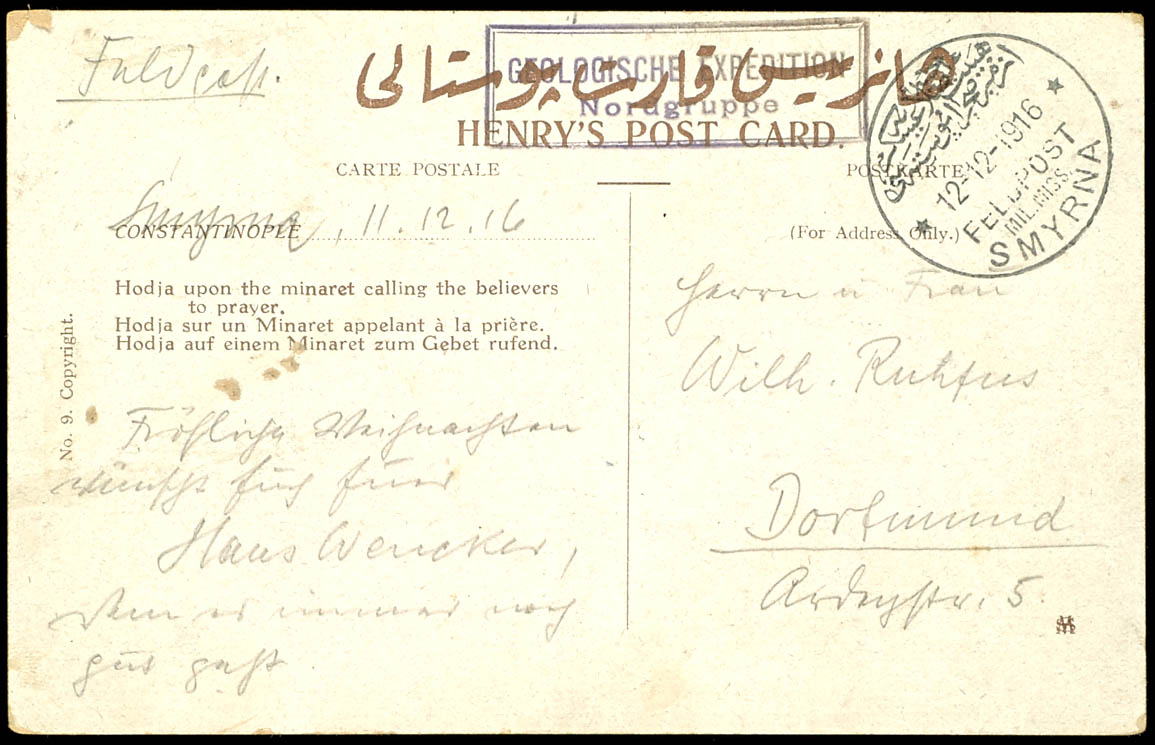 Feldpost.
GEOLOGISCHE EXPEDITION
Nordgruppe
هانريس قارت پوستالى
HENRY'S POST CARD.
CARTE POSTALE
POSTKARTE
12-12-1916
FELDPOST
MIL. MISS.
SMYRNA
CONSTANTINOPLE
Smyrna, 11.12.16
(For Address Only.)
Hodja upon the minaret calling the believers
to prayer.
Hodja sur un Minaret appelant à la prière.
Hodja auf einem Minaret zum Gebet rufend.
No. 9. Copyright.
Fröhliche Weihnachten
wünscht Euch Euer
Hans Wencker,
dem es immer noch
gut geht
Herrn u Frau
Wilh. Ruhfus
Dortmund
Ardeystr. 5.